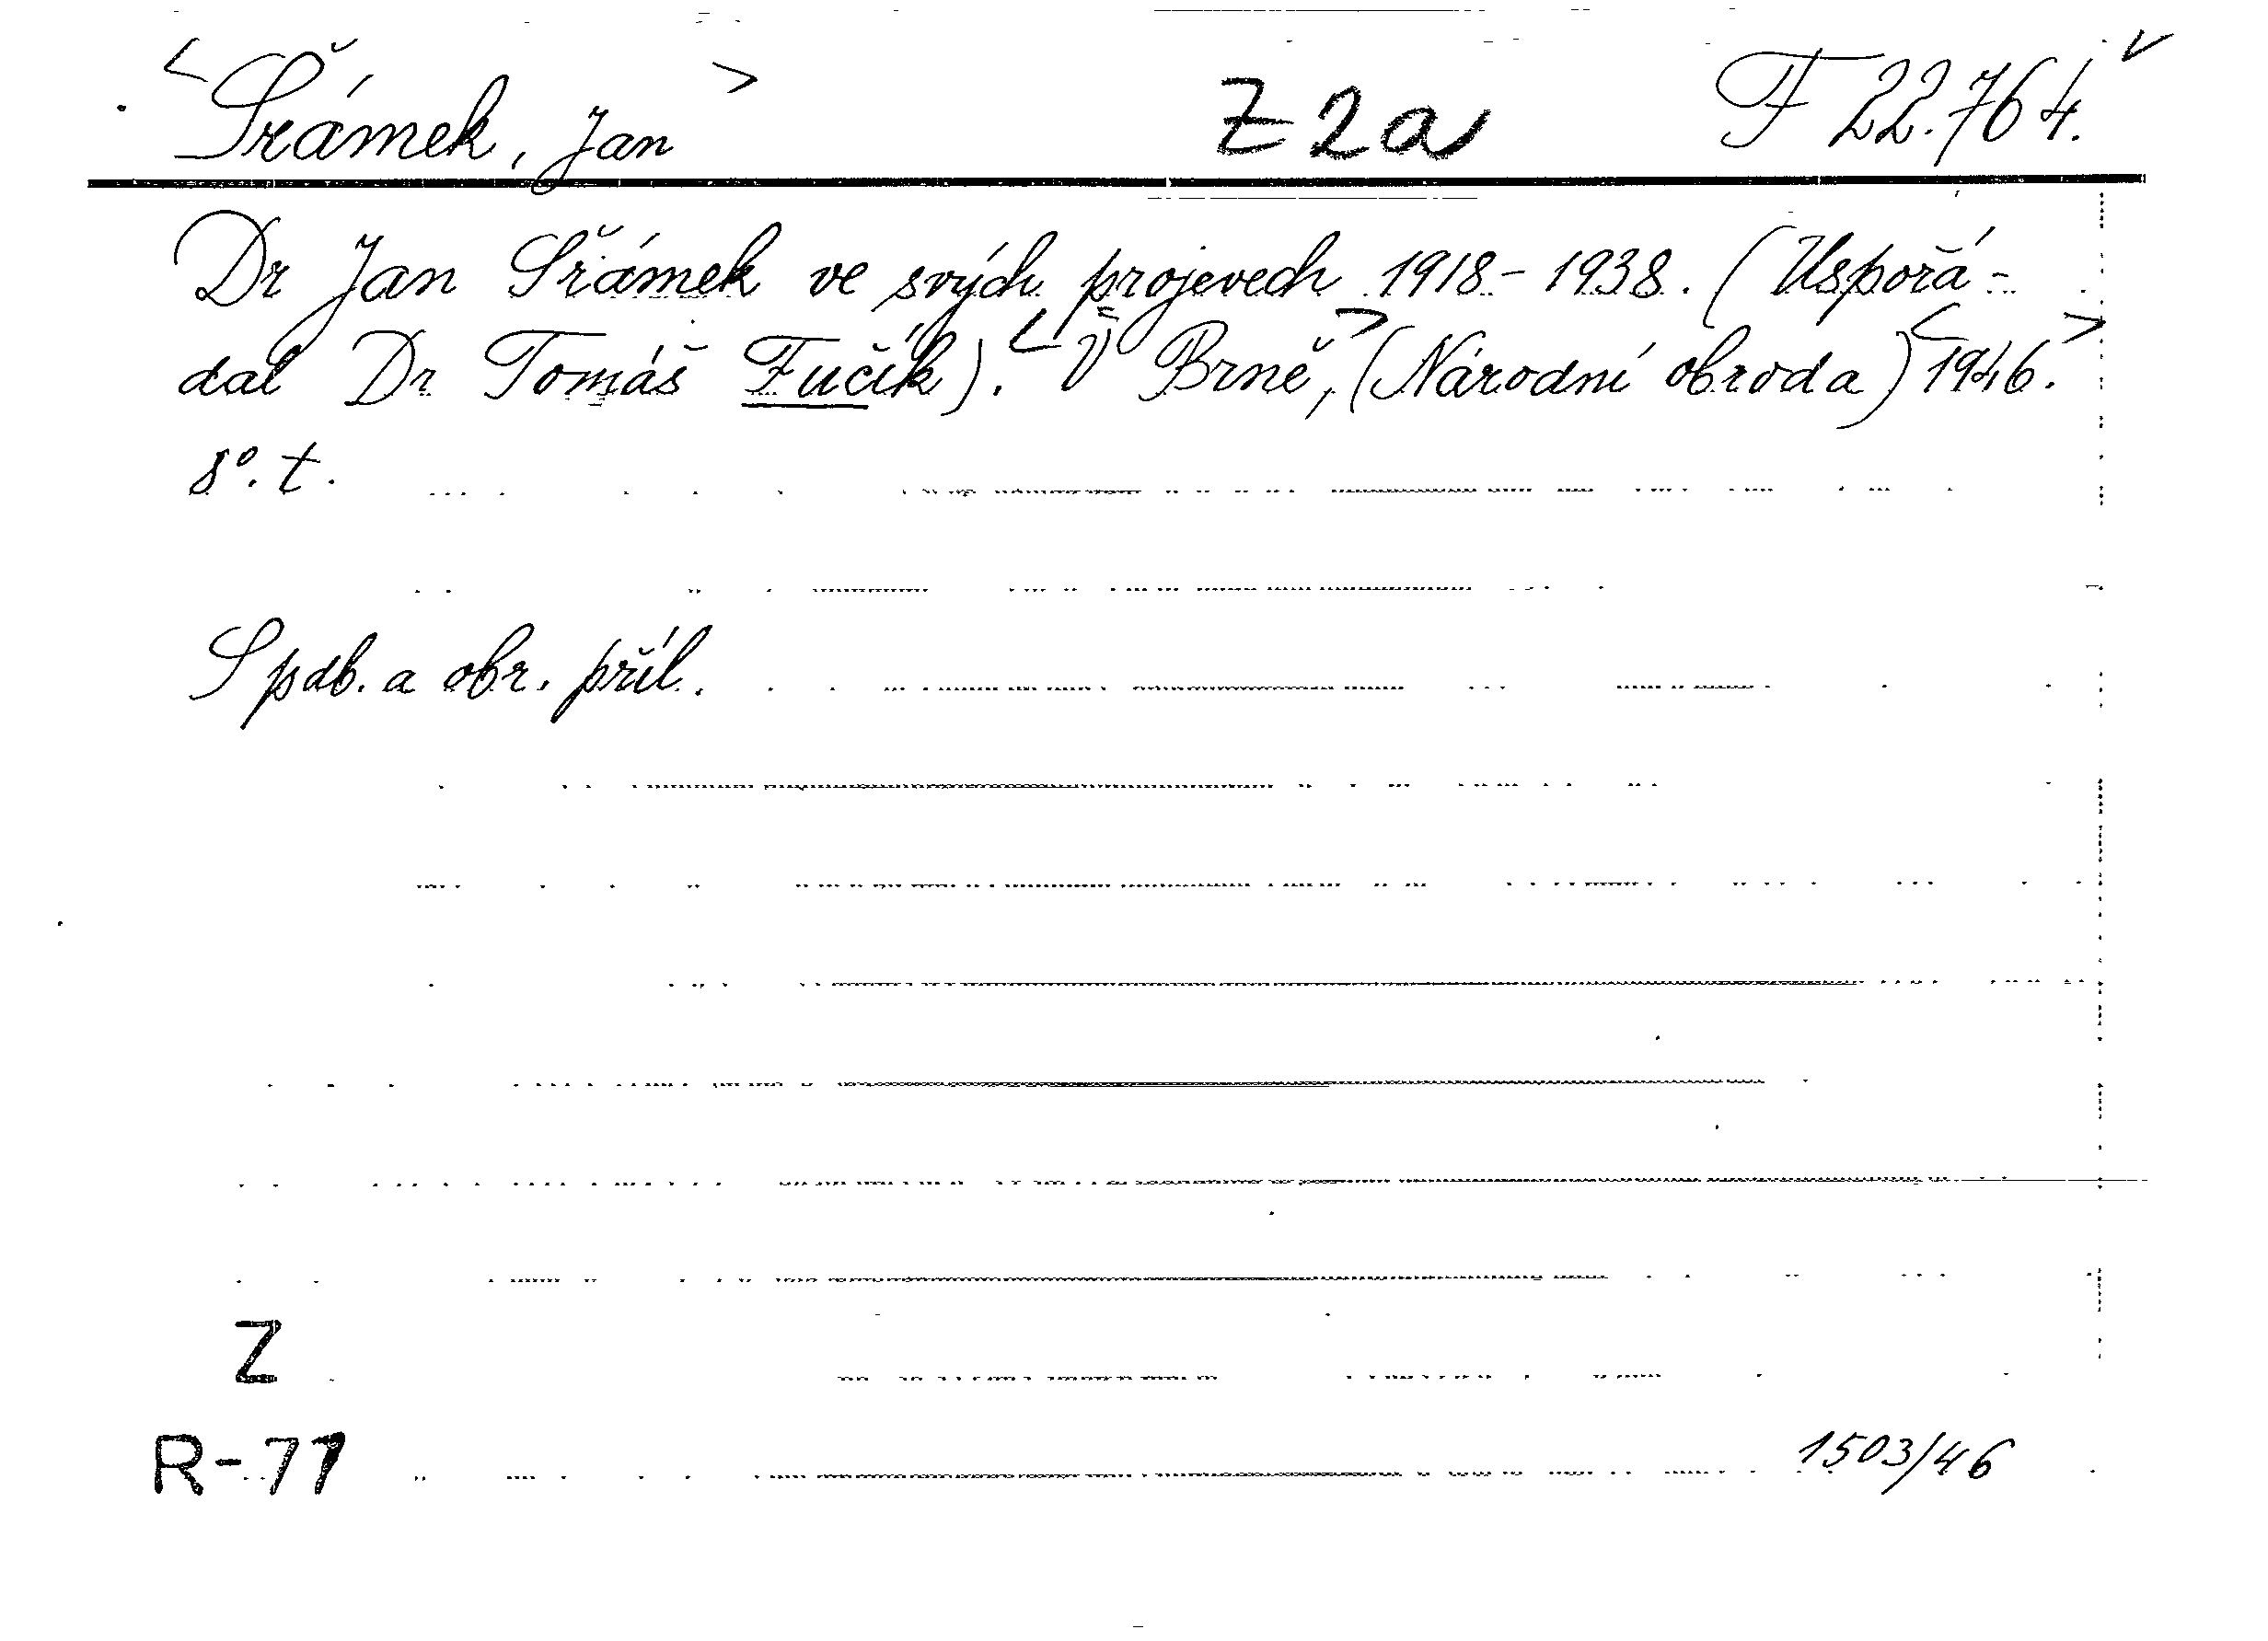 <Šrámek, Jan> Z2a F 22.764.
Dr Jan Šrámek ve svých projevech 1918-1938. (Uspořá-
dal Dr Tomáš Fučík). <V Brně,> (Národní obroda) <1946.>
8°. t.
S pdb. a obr. příl.
Z
R-71 1503/46